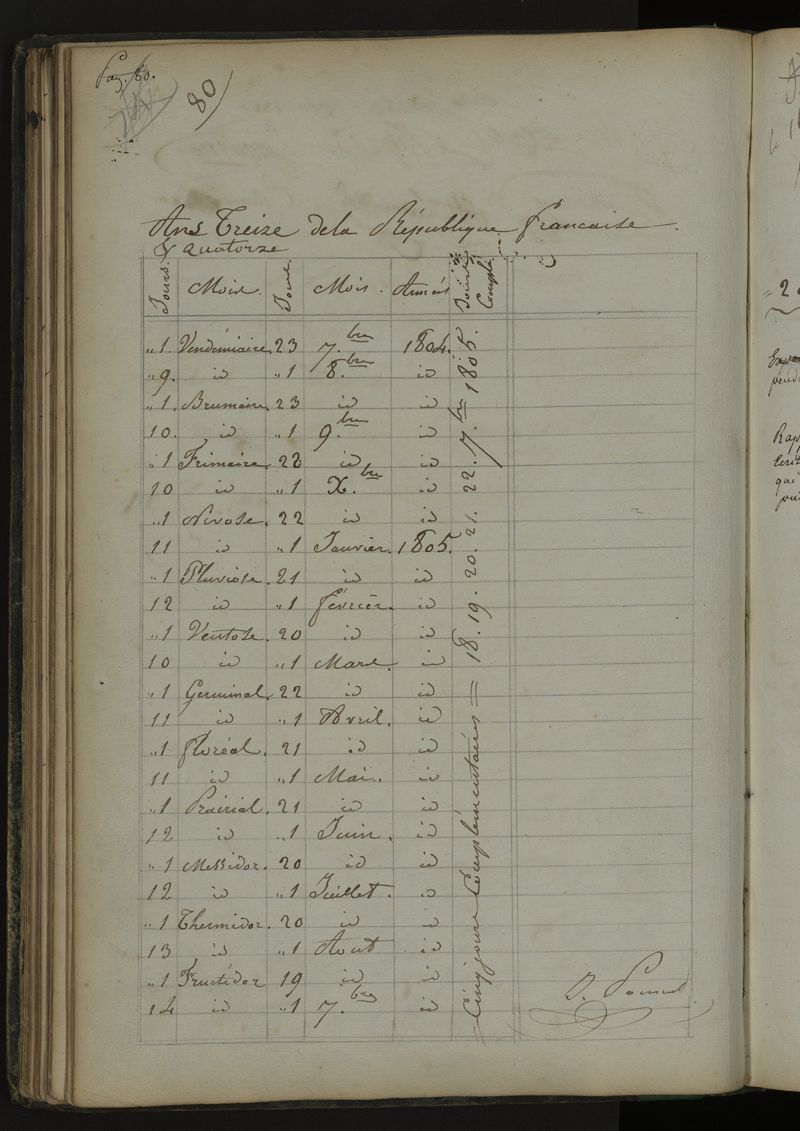 Pag. 80.
80
Ans Treize de la République francaise
& quatorze
Jours. Mois. Jours. Mois. Années Jours Compl.
" 1. Vendémiaire. 23 7.bre 1804.
" 9. id " 1 8.bre id
" 1. Brumaire. 23 id id
10. id " 1 9.bre id
" 1 Frimaire. 22 id id
10 id " 1 X.bre id
" 1 Nivose. 22 id id
11 id " 1 Janvier. 1805.
" 1 Pluviose. 21 id id
12 id " 1 février. id
" 1 Ventose. 20 id id
10 id " 1 Mars id
" 1 Germinal. 22 id id
11 id " 1 Avril. id
" 1 floréal. 21 id id
11 id " 1 Mai. id
" 1 Prairial. 21 id id
12 id " 1 Juin. id
" 1 Messidor. 20 id id
12 id " 1 Juillet. id
" 1 Thermidor. 20 id id
13 id " 1 Aout id
" 1 Fructidor 19 id id
14 id " 1 7.bre id
Cinq jours Complémentaires = 18. 19. 20. 21. 22. 7.bre 1805.